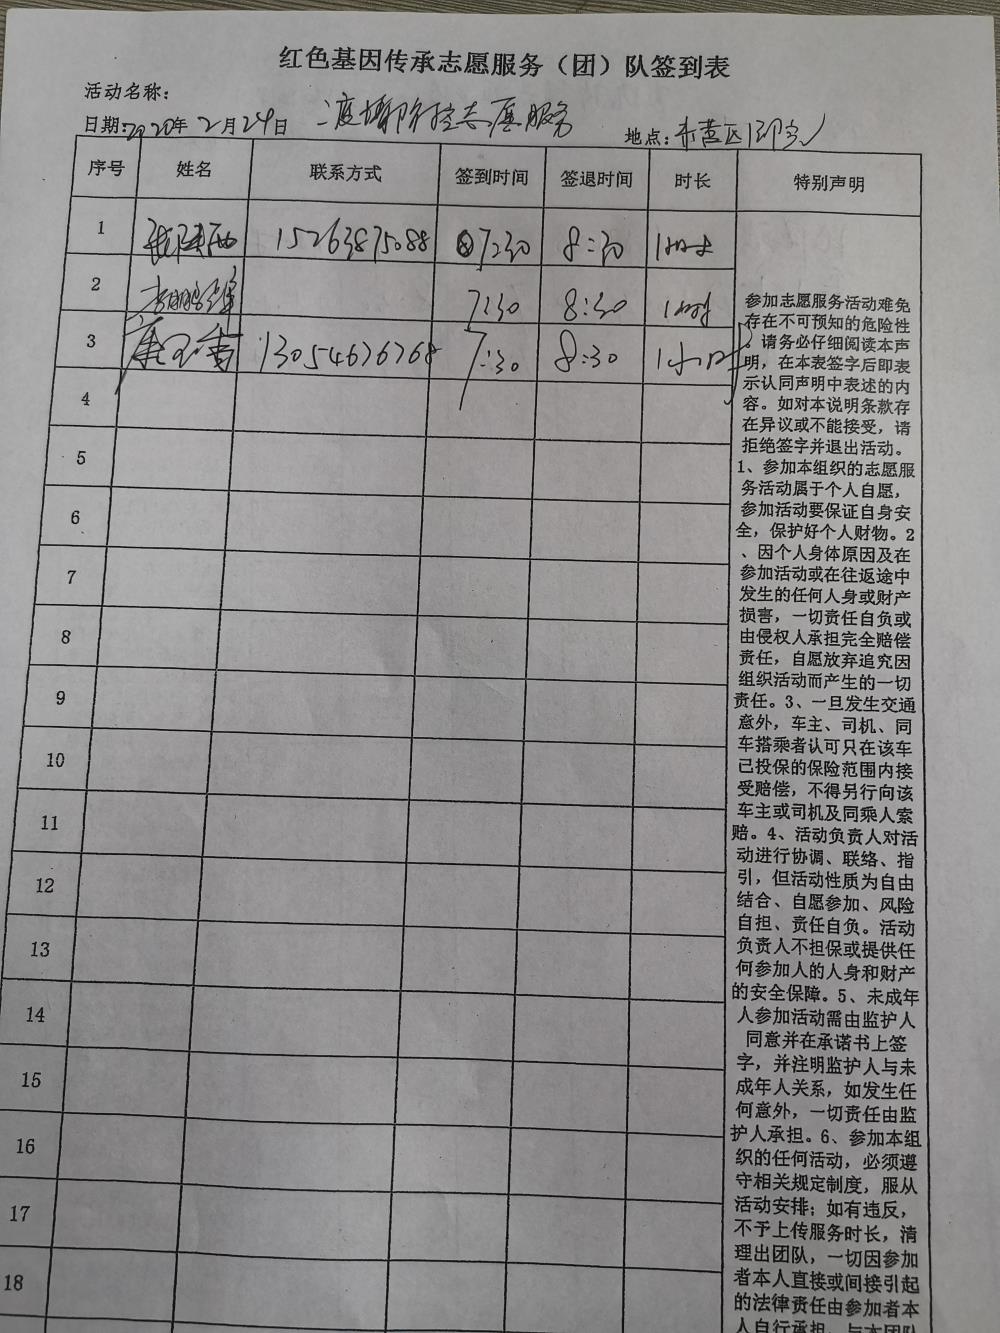 红色基因传承志愿服务（团）队签到表
活动名称：
日期：2020年2月24日 志愿服务 地点：
序号 姓名 联系方式 签到时间 签退时间 时长 特别声明
1 15263875088 7:30 8:30 1小时
2 7:30 8:30 1小时
3 13054676768 7:30 8:30 1小时
4
5
6
7
8
9
10
11
12
13
14
15
16
17
18
参加志愿服务活动难免
存在不可预知的危险性
。请务必仔细阅读本声
明，在本表签字后即表
示认同声明中表述的内
容。如对本说明条款存
在异议或不能接受，请
拒绝签字并退出活动。
1、参加本组织的志愿服
务活动属于个人自愿，
参加活动要保证自身安
全，保护好个人财物。2
、因个人身体原因及在
参加活动或在往返途中
发生的任何人身或财产
损害，一切责任自负或
由侵权人承担完全赔偿
责任，自愿放弃追究因
组织活动而产生的一切
责任。3、一旦发生交通
意外，车主、司机、同
车搭乘者认可只在该车
已投保的保险范围内接
受赔偿，不得另行向该
车主或司机及同乘人索
赔。4、活动负责人对活
动进行协调、联络、指
引，但活动性质为自由
结合、自愿参加、风险
自担、责任自负。活动
负责人不担保或提供任
何参加人的人身和财产
的安全保障。5、未成年
人参加活动需由监护人
同意并在承诺书上签
字，并注明监护人与未
成年人关系，如发生任
何意外，一切责任由监
护人承担。6、参加本组
织的任何活动，必须遵
守相关规定制度，服从
活动安排；如有违反，
不予上传服务时长，清
理出团队，一切因参加
者本人直接或间接引起
的法律责任由参加者本
人自行承担，与本团队